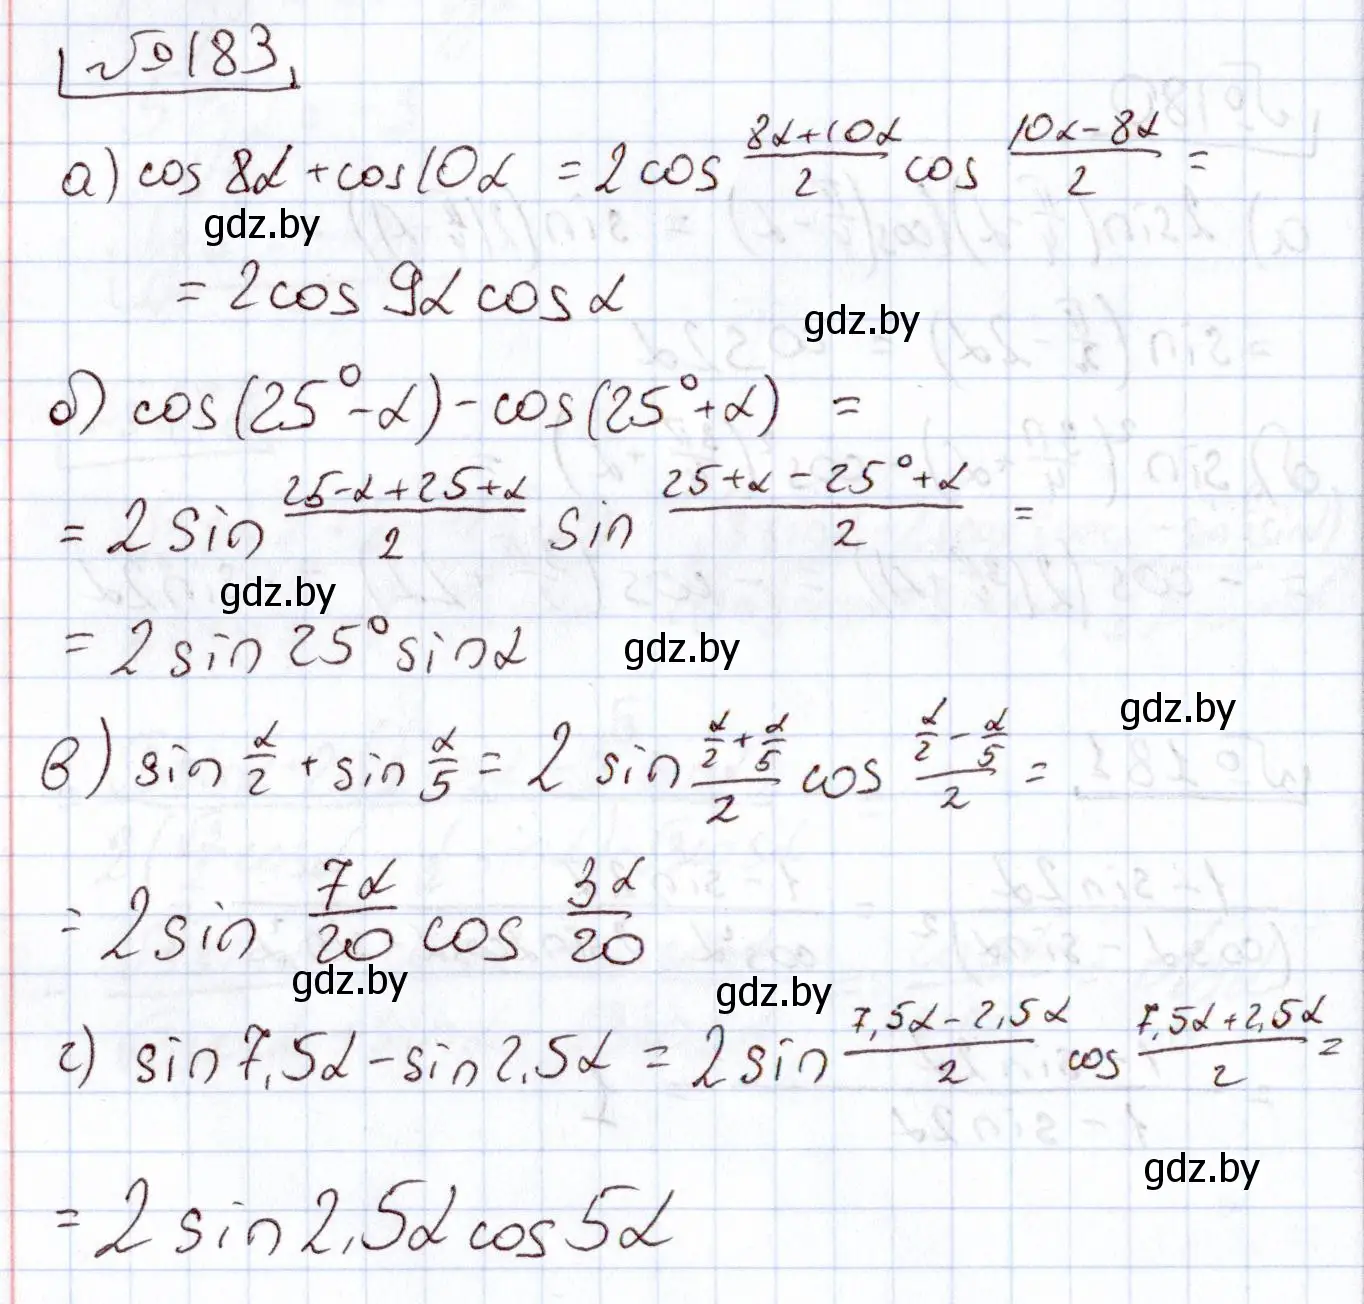 №183
а) cos 8α + cos 10α = 2 cos (8α+10α)/2 cos (10α-8α)/2 =
gdz.by
= 2 cos 9α cos α
gdz.by
б) cos(25°-α) - cos(25°+α) =
= 2 sin (25-α+25+α)/2 sin (25+α-25°+α)/2 =
gdz.by
= 2 sin 25° sin α
gdz.by
gdz.by
в) sin α/2 + sin α/5 = 2 sin (α/2+α/5)/2 cos (α/2-α/5)/2 =
= 2 sin 7α/20 cos 3α/20
gdz.by
gdz.by
г) sin 7,5α - sin 2,5α = 2 sin (7,5α-2,5α)/2 cos (7,5α+2,5α)/2 =
gdz.by
= 2 sin 2,5α cos 5α